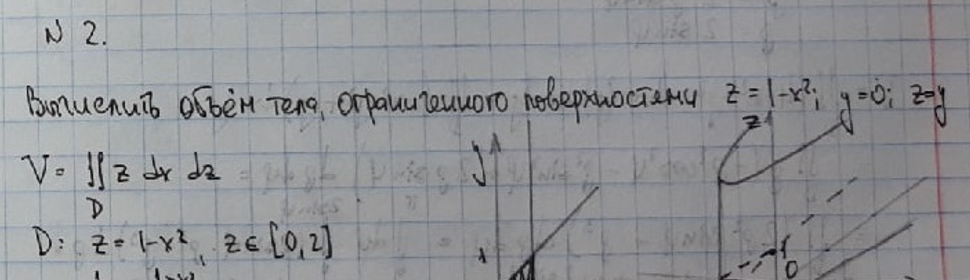 N 2.
Вычислить объём тела, ограниченного поверхностями z = 1-x²; y=0; z=y
V = ∬ z dx dz
D
D: z = 1-x², z ∈ [0,2]
y
z
1
0